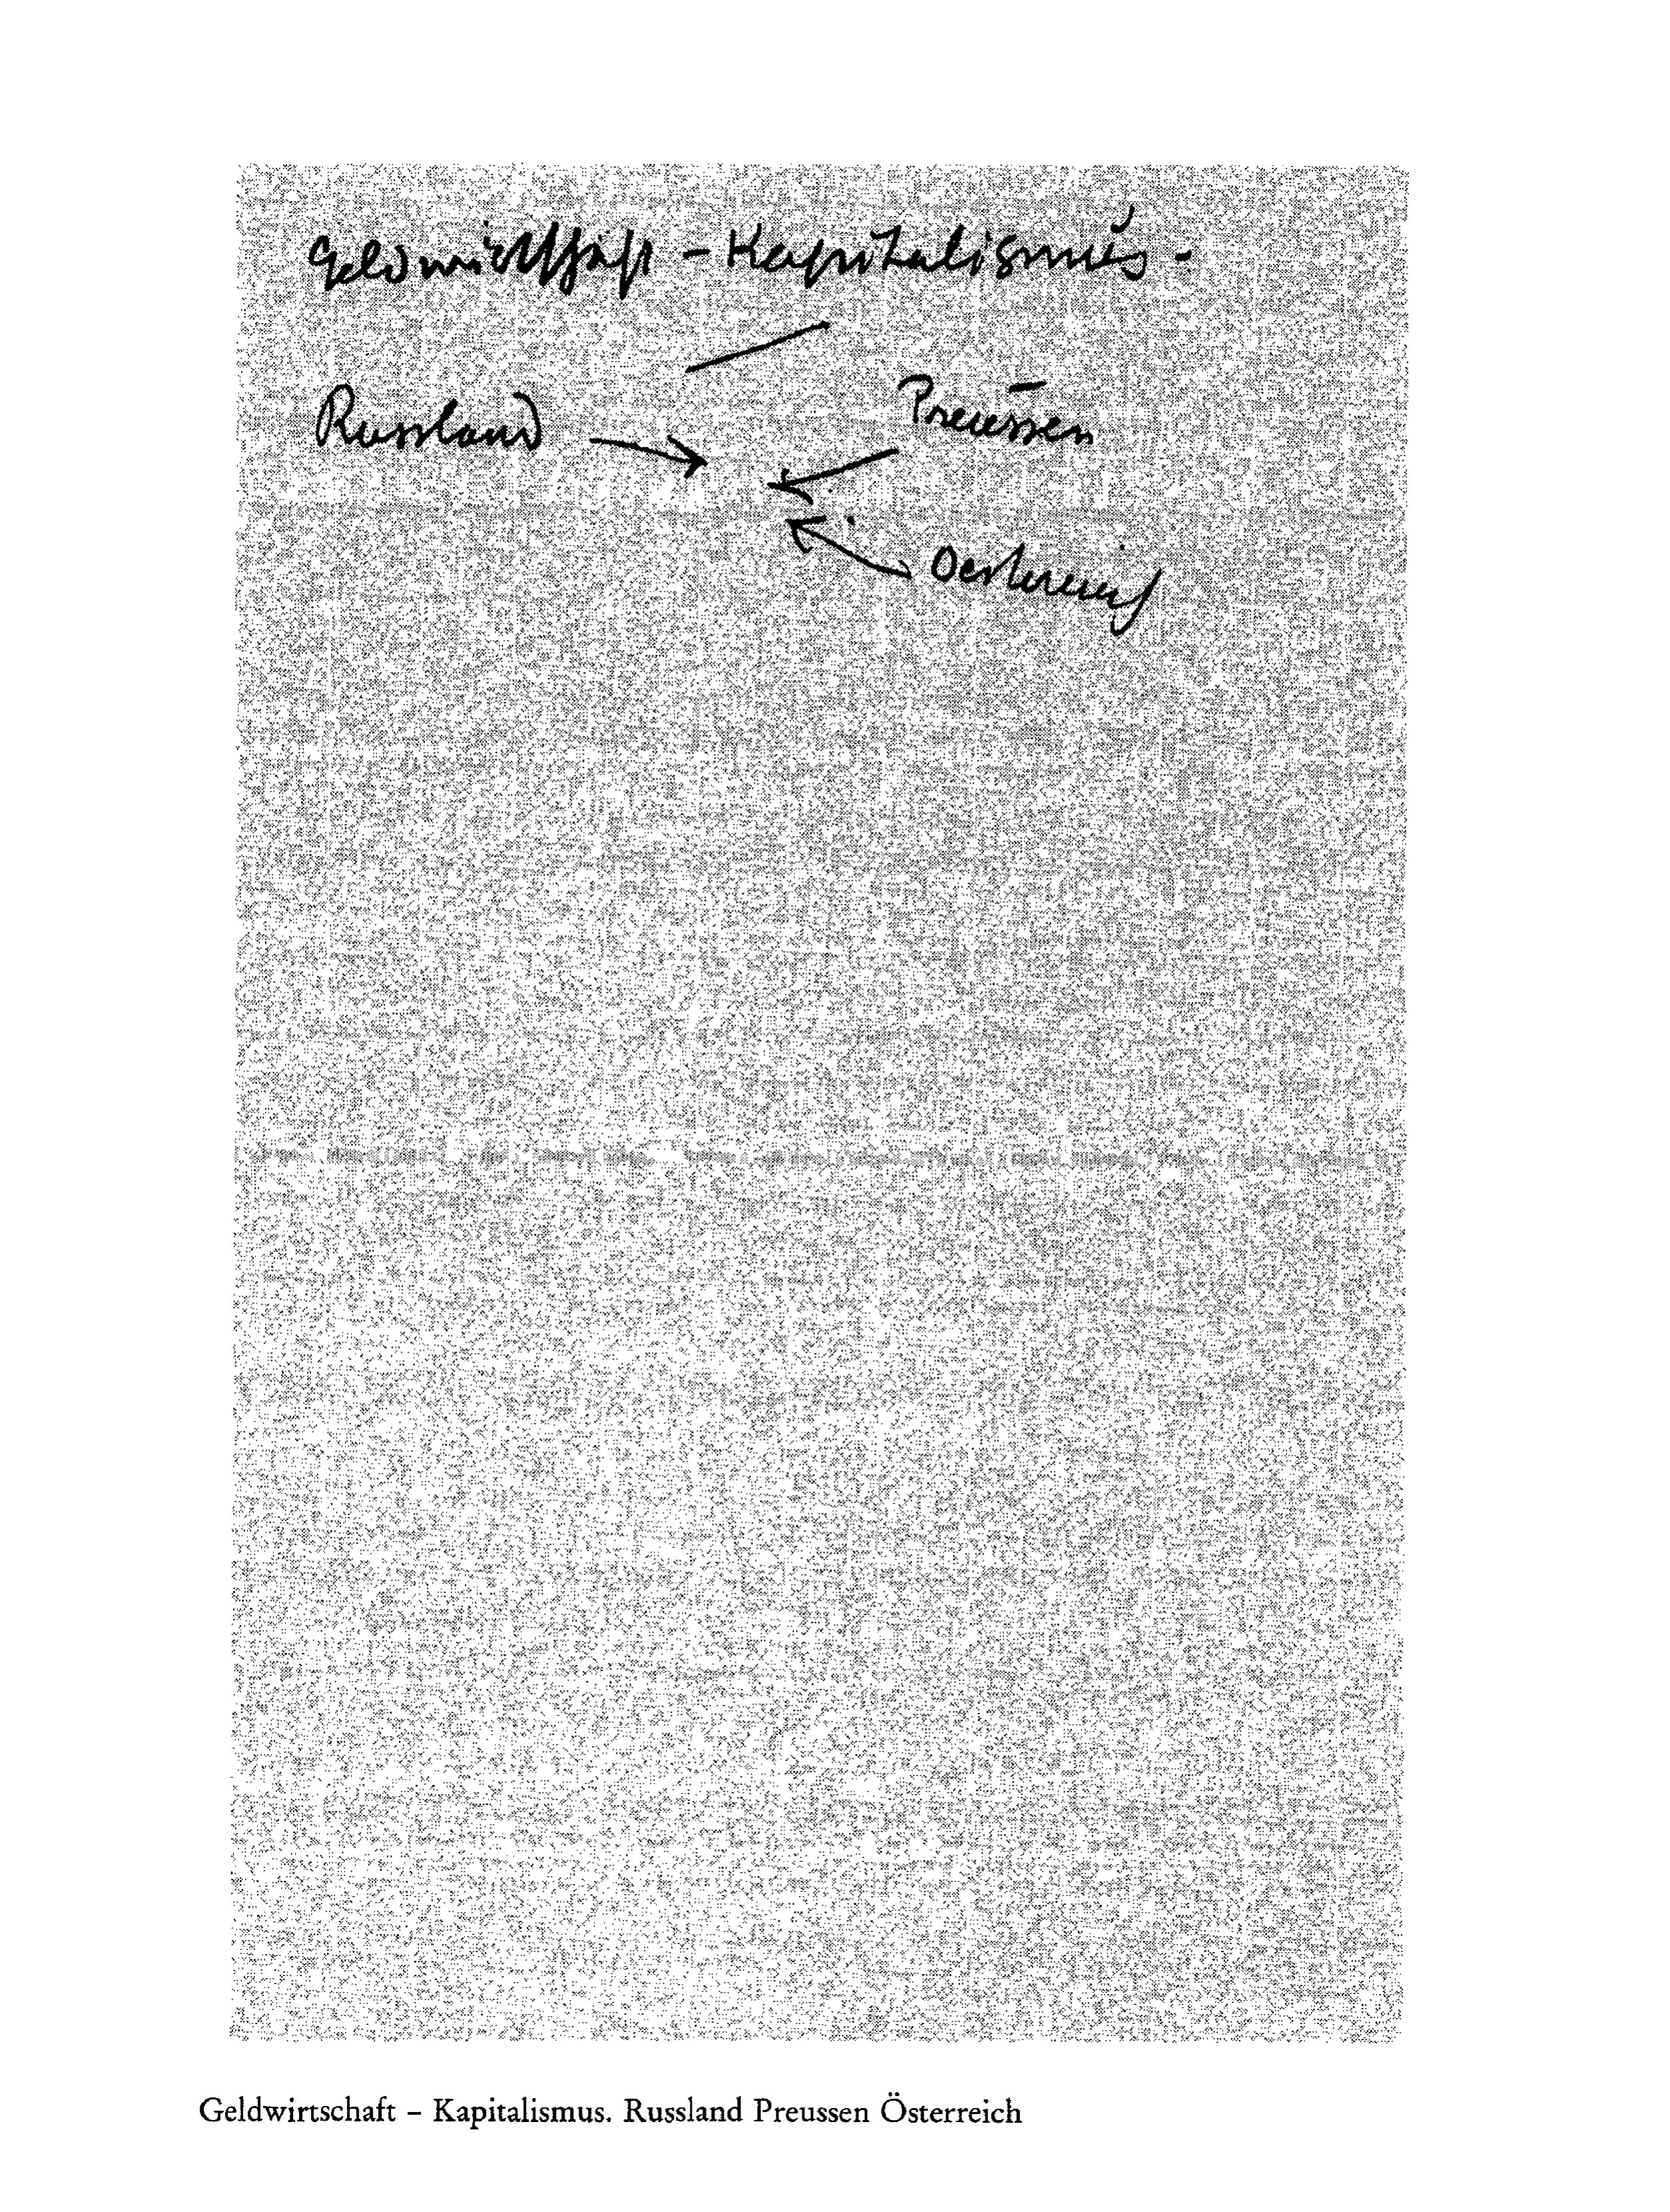 Geldwirtschaft - Kapitalismus -
Russland
Preussen
Oesterreich
Geldwirtschaft – Kapitalismus. Russland Preussen Österreich